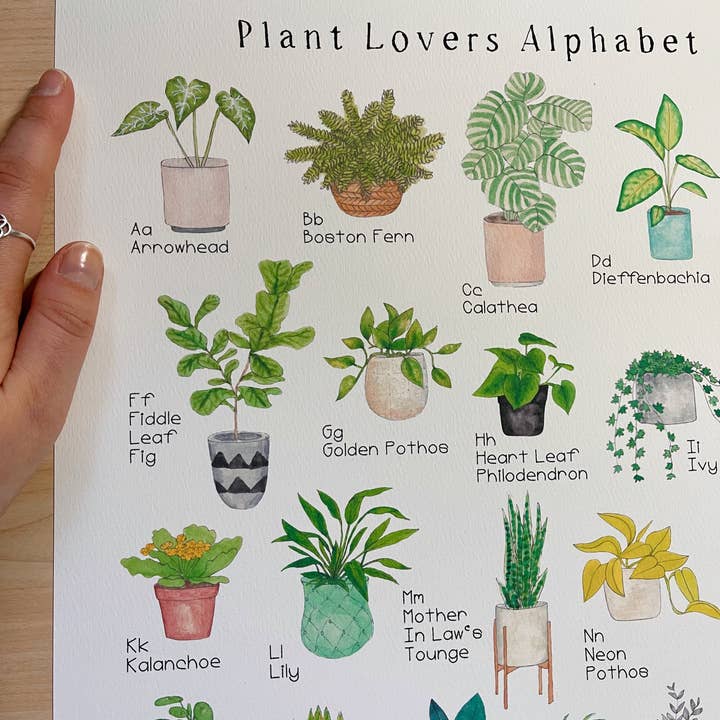 Plant Lovers Alphabet
Aa
Arrowhead
Bb
Boston Fern
Cc
Calathea
Dd
Dieffenbachia
Ff
Fiddle
Leaf
Fig
Gg
Golden Pothos
Hh
Heart Leaf
Philodendron
Ii
Ivy
Kk
Kalanchoe
Ll
Lily
Mm
Mother
In Law's
Tounge
Nn
Neon
Pothos